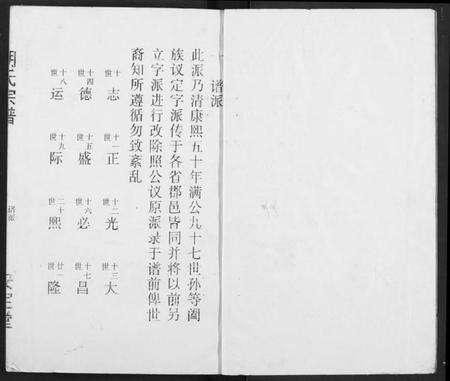 谱派
此派乃清康熙五十年满公九十七世孙等阖
族议定字派传于各省郡邑皆同并将以前另
立字派进行改除照公议原派录于谱前俾世
裔知所遵循勿致紊乱
十世 志 十一世 正 十二世 光 十三世 大
十四世 德 十五世 盛 十六世 必 十七世 昌
十八世 运 十九世 际 二十世 熙 廿一世 隆
胡氏宗谱 谱派 安定堂